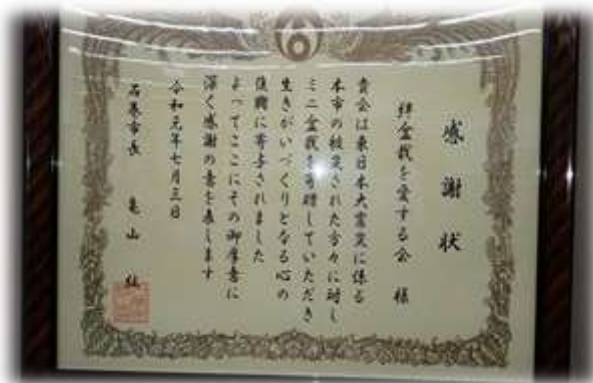 感謝状
絆盆栽を愛する会 様
貴会は東日本大震災に係る
本市の被災された方々に対し
ミニ盆栽を寄贈していただき
生きがいづくりとなる心の
復興に寄与されました
よってここにその御厚意に
深く感謝の意を表します
令和元年七月三日
石巻市長 亀山 紘